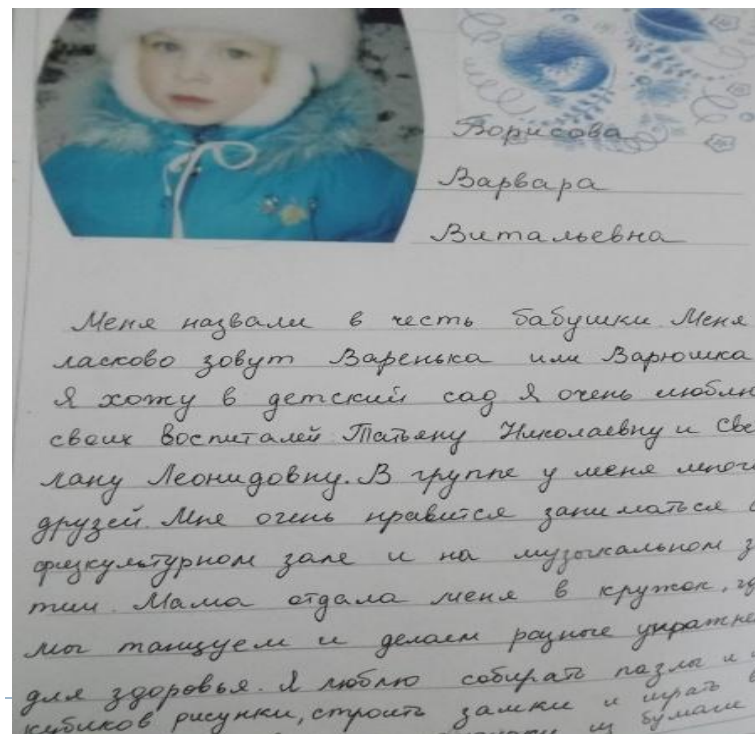 Борисова
Варвара
Витальевна
Меня назвали в честь бабушки. Меня
ласково зовут Варенька или Варюшка
Я хожу в детский сад Я очень люблю
своих воспиталей Татьяну Николаевну и Све
лану Леонидовну. В группе у меня много
друзей. Мне очень нравится заниматься
физкультурном зале и на музыкальном з
тии. Мама отдала меня в кружок, где
мы танцуем и делаем разные упражне
для здоровья. Я люблю собирать пазлы и
кубиков рисунки, строить замки и играть в
из бумаги